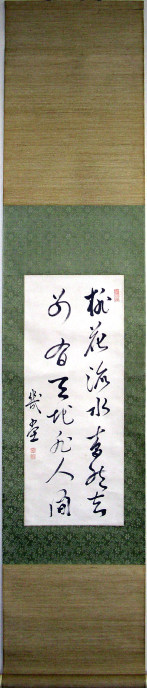 桃花流水杳然去
別有天地非人間
幾堂